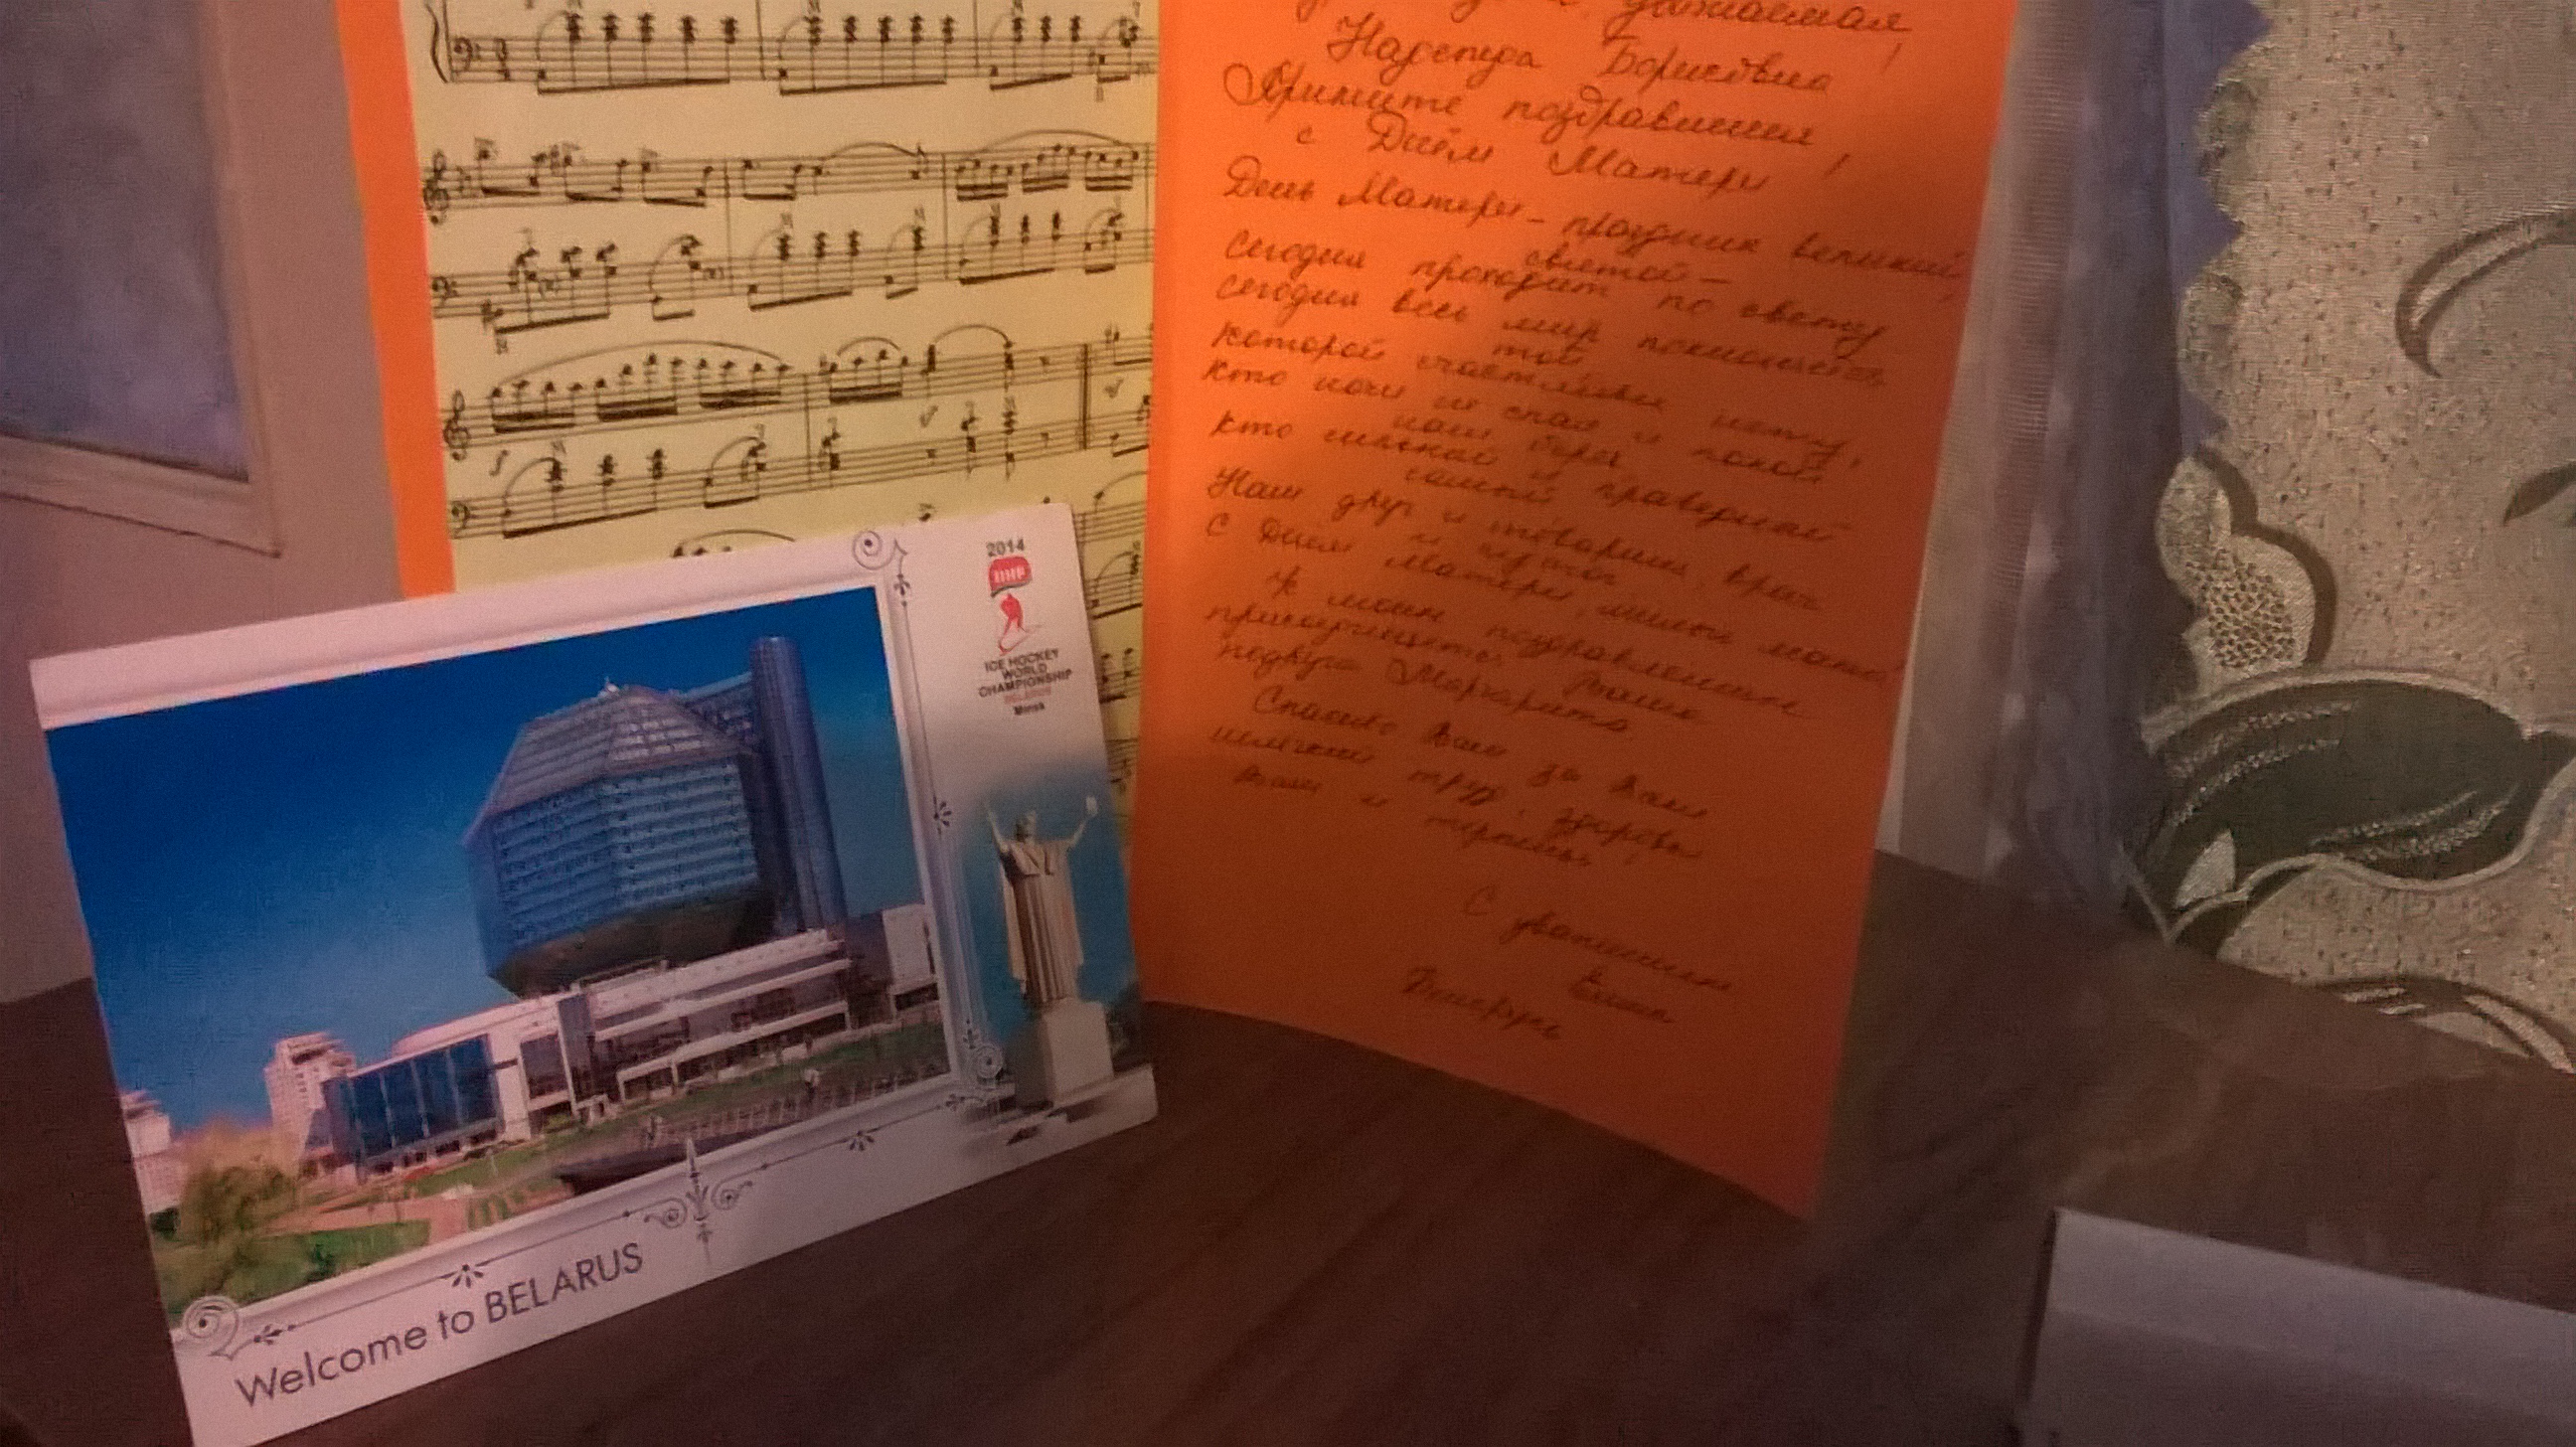 уважаемая
Борисовна!
Примите поздравления
с Днём Матери!
День Матери – праздник великий,
святой –
Сегодня проходит по свету
Сегодня весь мир поклониться
той
которой счастливей нету,
кто ночи не спал и покой
наш берёг
кто сильный и праведный
самый
Наш друг и товарищ, врач
и педагог
С Днём Матери, милые мамы!
К моим поздравлениям
присоединяется Ваша
подруга Маргарита.
Спасибо Вам за Ваш
нелёгкий труд, здоровья
Вам и терпения
С уважением
2014
IIHF
ICE HOCKEY
WORLD
CHAMPIONSHIP
BELARUS
Minsk
Welcome to BELARUS